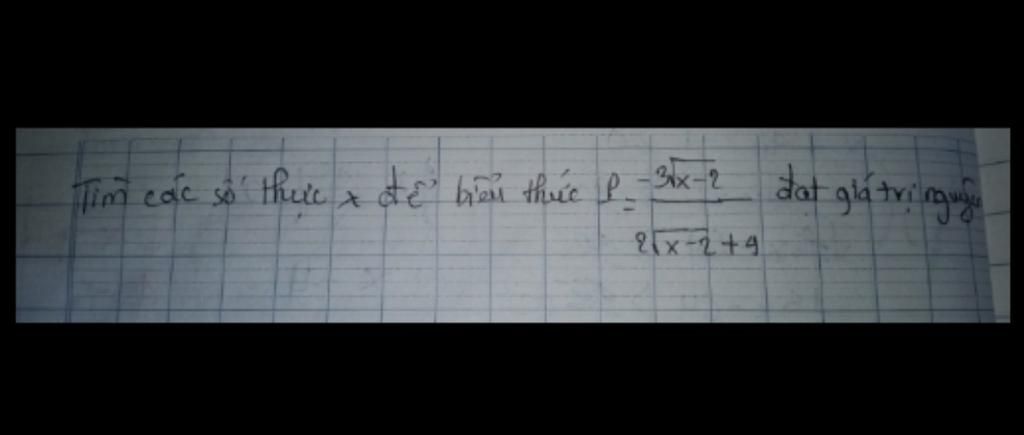 Tìm các số thực x để biểu thức P = \frac{-3\sqrt{x-2}}{2\sqrt{x-2}+4} đạt giá trị nguyên